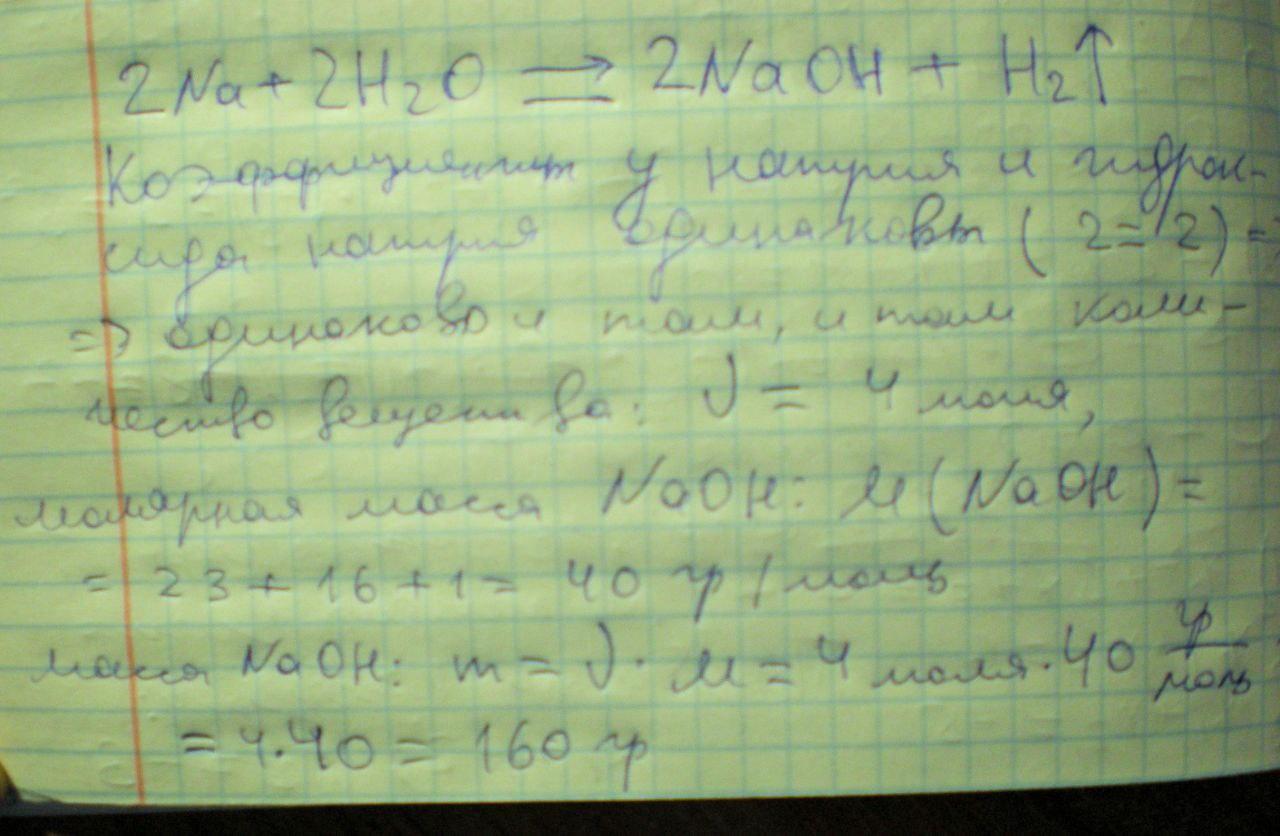 2Na + 2H₂O ⇒ 2NaOH + H₂↑
Коэффициенты у натрия и гидрок-
сида натрия одинаковы (2=2) =>
=> одинаково и там, и там коли-
чество вещества: ν = 4 моля,
молярная масса NaOH: M(NaOH) =
= 23 + 16 + 1 = 40 гр/моль
масса NaOH: m = ν · M = 4 моля · 40 гр/моль
= 4·40 = 160 гр